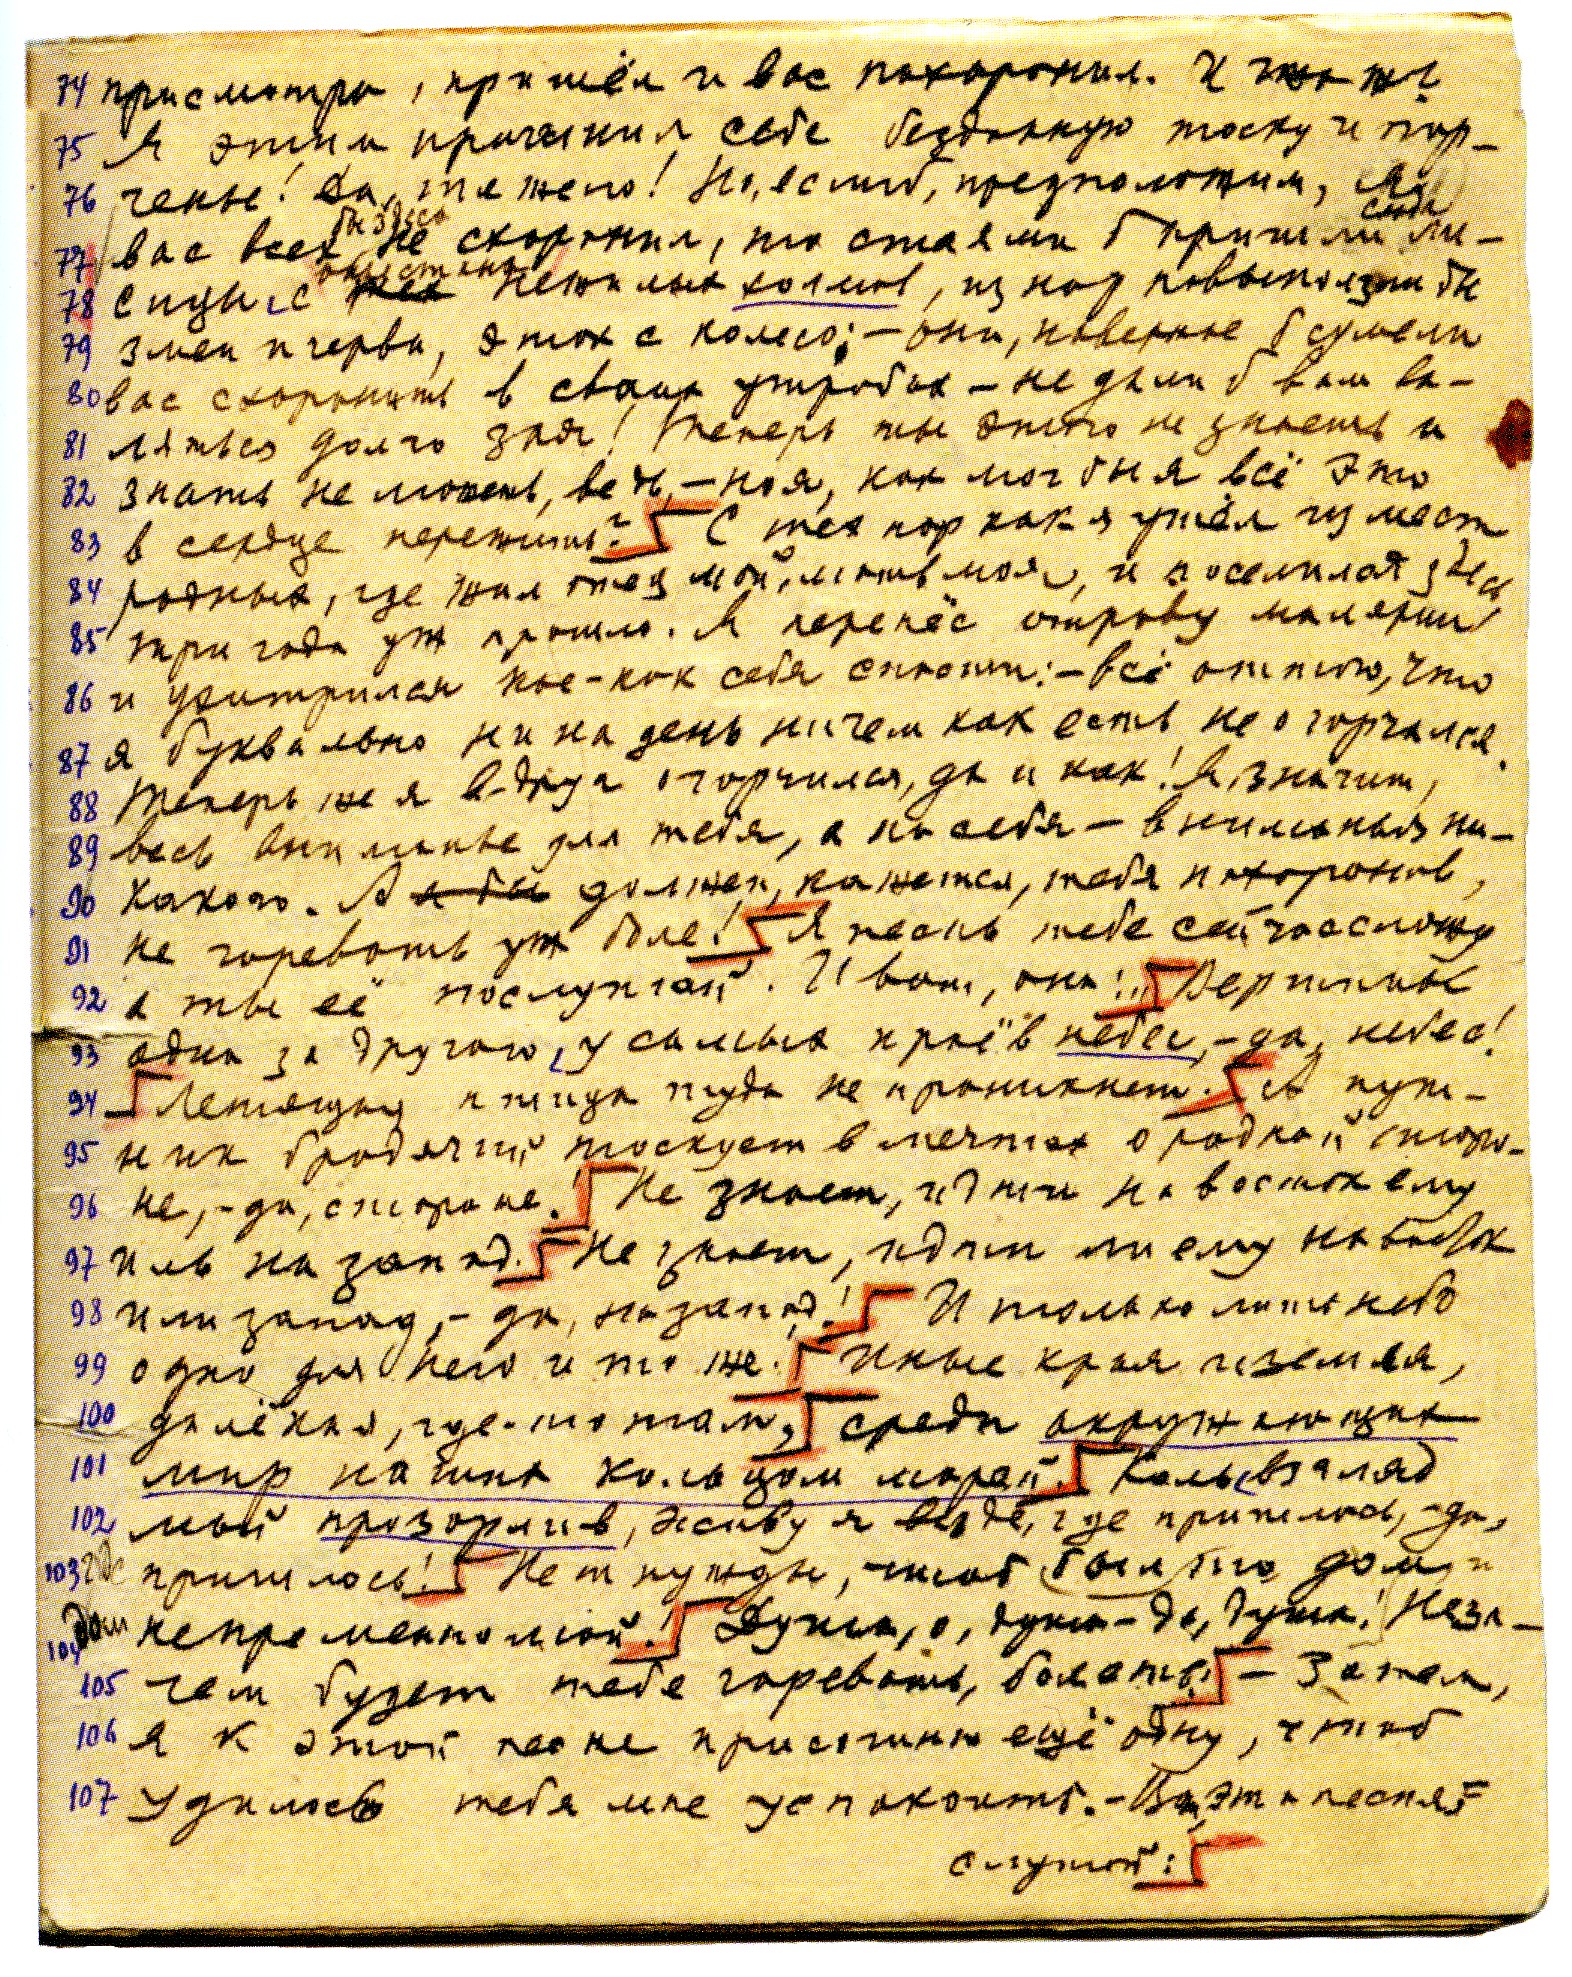 74 присмотра, пришёл и вас похоронил. И что ж?
75 Я этим причинил себе бездонную тоску и гор-
76 ченье! Да, тяжело! Но, если б, предположим, я
бы здесь сюда
77 вас всех не схоронил, то стаями б пришли ли-
окрестных
78 сицы с тех нежилых холмов, из нор повыползли бы
79 змеи и черви, эток с колесо; – они, наверное б сумели
80 вас схоронить в своих утробах – не дали б вам ва-
81 ляться долго зря! Теперь ты этого не знаешь и
82 знать не можешь, ведь, – но я, как мог бы я всё это
83 в сердце пережить? С тех пор как я ушёл из мест
84 родных, где жил отец мой, мать моя, и поселился здесь
85 три года уж прошло. Я перенёс отраву малярий
86 и ухитрился кое-как себя спасти: – всё оттого, что
87 я буквально ни на день ничем как есть не огорчался.
88 Теперь же я в-друг огорчился, да и как! Я, значит,
89 весь вниманье для тебя, а на себя – вниманья ни-
90 какого. А я бы должен, кажется, тебя похоронив,
91 не горевать уж боле! Я песнь тебе сейчас сложу
92 а ты её послушай. И вот, она: Вершины
93 одна за другою, у самых краёв небес, – да, небес!
94 Летящая птица туда не проникнет. А пут-
95 ник бродячий тоскует в мечтах о родной сторо-
96 не, – да, стороне! Не знает, идти на восток ему
97 иль на запад. Не знает, идти ли ему на восток
98 или запад, – да, на запад! И только лишь небо
99 одно для него и то же. Иные края и земля,
100 далёкая, где-то там, среди окружающих
101 мир наших кольцом морей. Коль взгляд
102 мой прозорлив, живу я везде, где пришлось, – да,
103 где пришлось! Нет нужды, чтоб был бы дом
104 дом непременно мой! Душа, о, душа – да, душа! Неза-
105 чем будет тебе горевать, болеть! – Затем,
106 я к этой песне присочиню ещё одну, чтоб
107 удалось тебя мне успокоить. – Вот, эта песня
слушай: